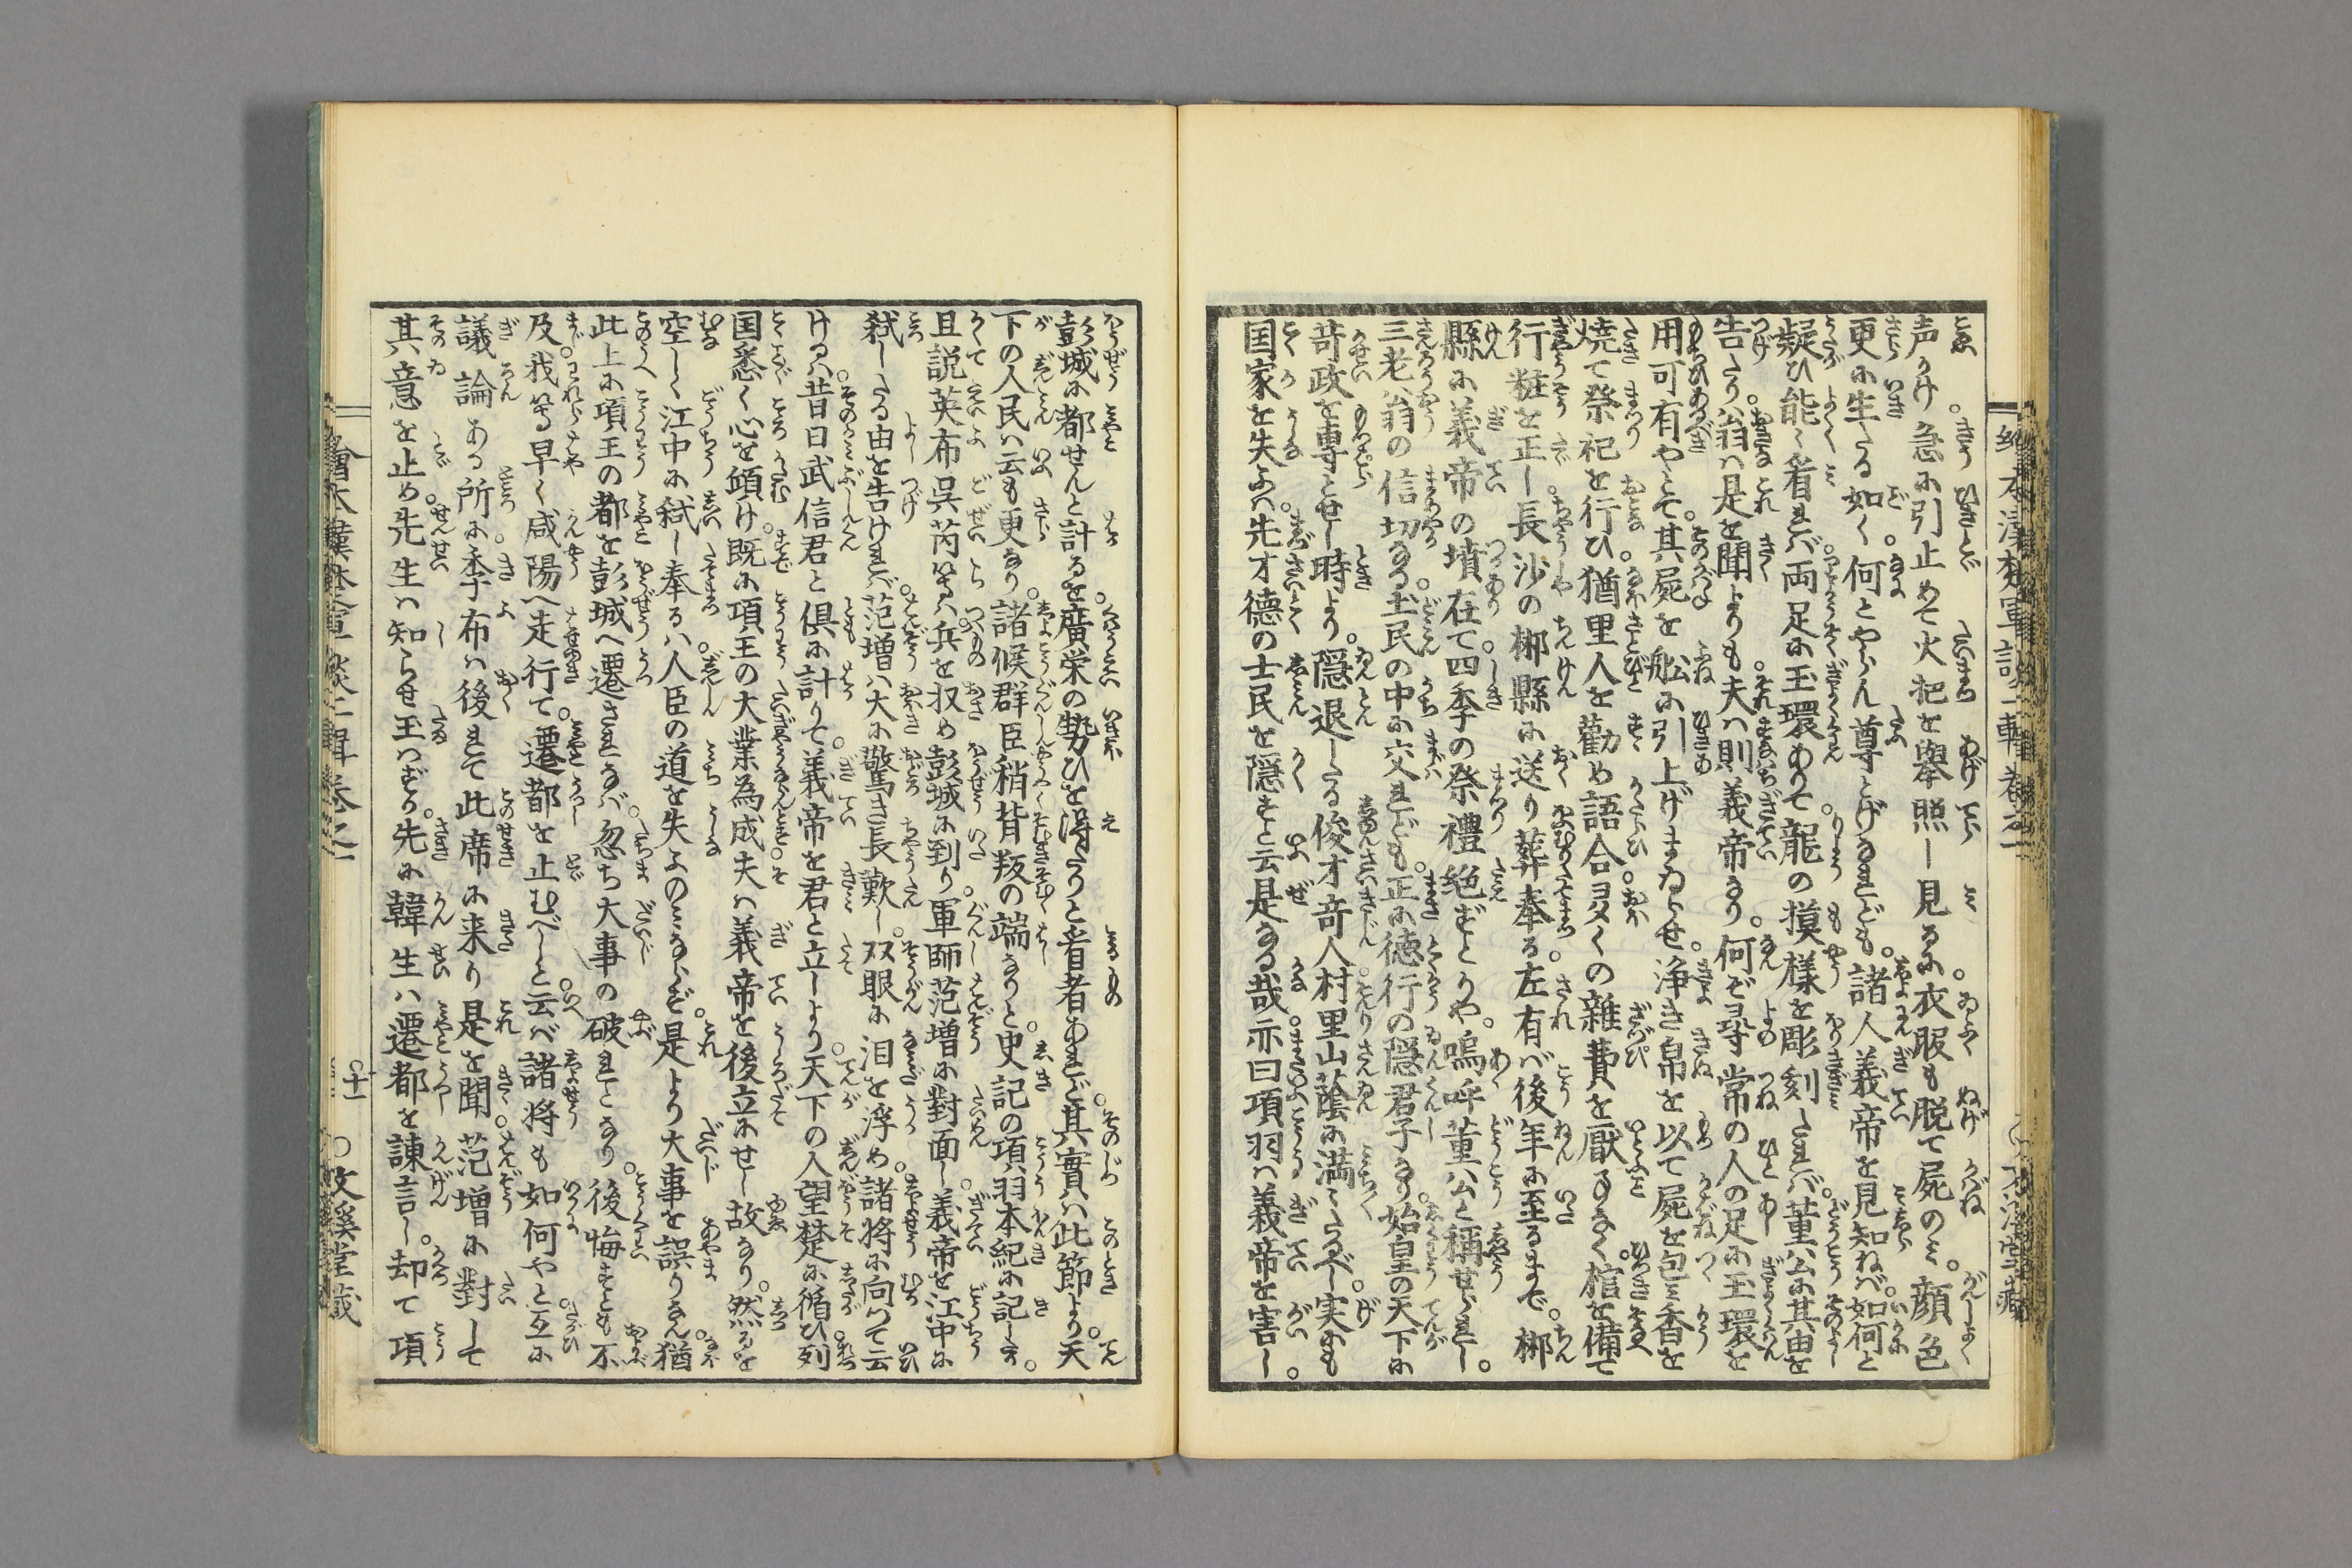 声かけ急に引止めて火把を擧照し見るに衣服も脱て屍のミ。顔色
更に生たる如く。何とやらん尊とげなれども。諸人義帝を見知ねば。如何と
疑ひ能〻看れば。両足に玉環ありて。龍の摸様を彫刻たれば。董公に其由を
告たり。翁ハ是を聞よりも。夫ハ則義帝なり。何ぞ尋常の人の足に玉環を
用可有やとて。其屍を舩に引上げまゐらせ。浄き帛を以て屍を包ミ香を
焼て祭祀を行ひ。猶里人を勸め語合。多くの雜費を厭ふなく。棺を備て
行粧を正し。長沙の郴縣に送り葬奉る。左有ば後年に至るまで。郴
縣に義帝の墳在て。四季の祭禮絶ずとかや。嗚呼董公と稱せられし。
三老翁の信切なる。土民の中に交れども。正に徳行の隠君子なり。始皇の天下に
苛政を専とせし時より。隠退したる俊才竒人。村里山蔭に満〻たるべし。実にも
国家を失ふハ。先才徳の士民を隠すと云是なる哉。亦曰項羽ハ義帝を害し。
彭城に都せんと計るを。廣栄の勢ひを得たりと看者あれど。其實ハ此節より。天
下の人民ハ云も更なり。諸候群臣稍背叛の端なりと。史記の項羽本紀に記したり。
且説英布呉芮等ハ。兵を収め彭城に到り。軍師范増に對面し。義帝を江中に
弑したる由を告けれバ。范増ハ大に驚き長歎し。双眼に泪を浮め。諸将に向つて云
けるハ。昔日武信君と倶に計りて。義帝を君と立しより。天下の人望楚に循ひ。列
国悉く心を傾け。既に項王の大業為成。夫ハ義帝を後立にせし故なり。然るを
空しく江中に弑し奉るハ。人臣の道を失ふのミならず。是より大事を誤りなん。猶
此上に項王の都を彭城へ遷されなバ。忽ち大事の破れとなり。後悔すとも不
及。我等早く咸陽へ走行て。遷都を止むべしと云ば。諸将も如何やと。互に
議論ある所に。季布ハ後れて此席に来り。是を聞。范増に對して
其意を止め。先生ハ知らせ玉はずか。先に韓生ハ遷都を諌言し。却て項
繪本漢楚軍談二輯巻之二
十一
○文溪堂藏